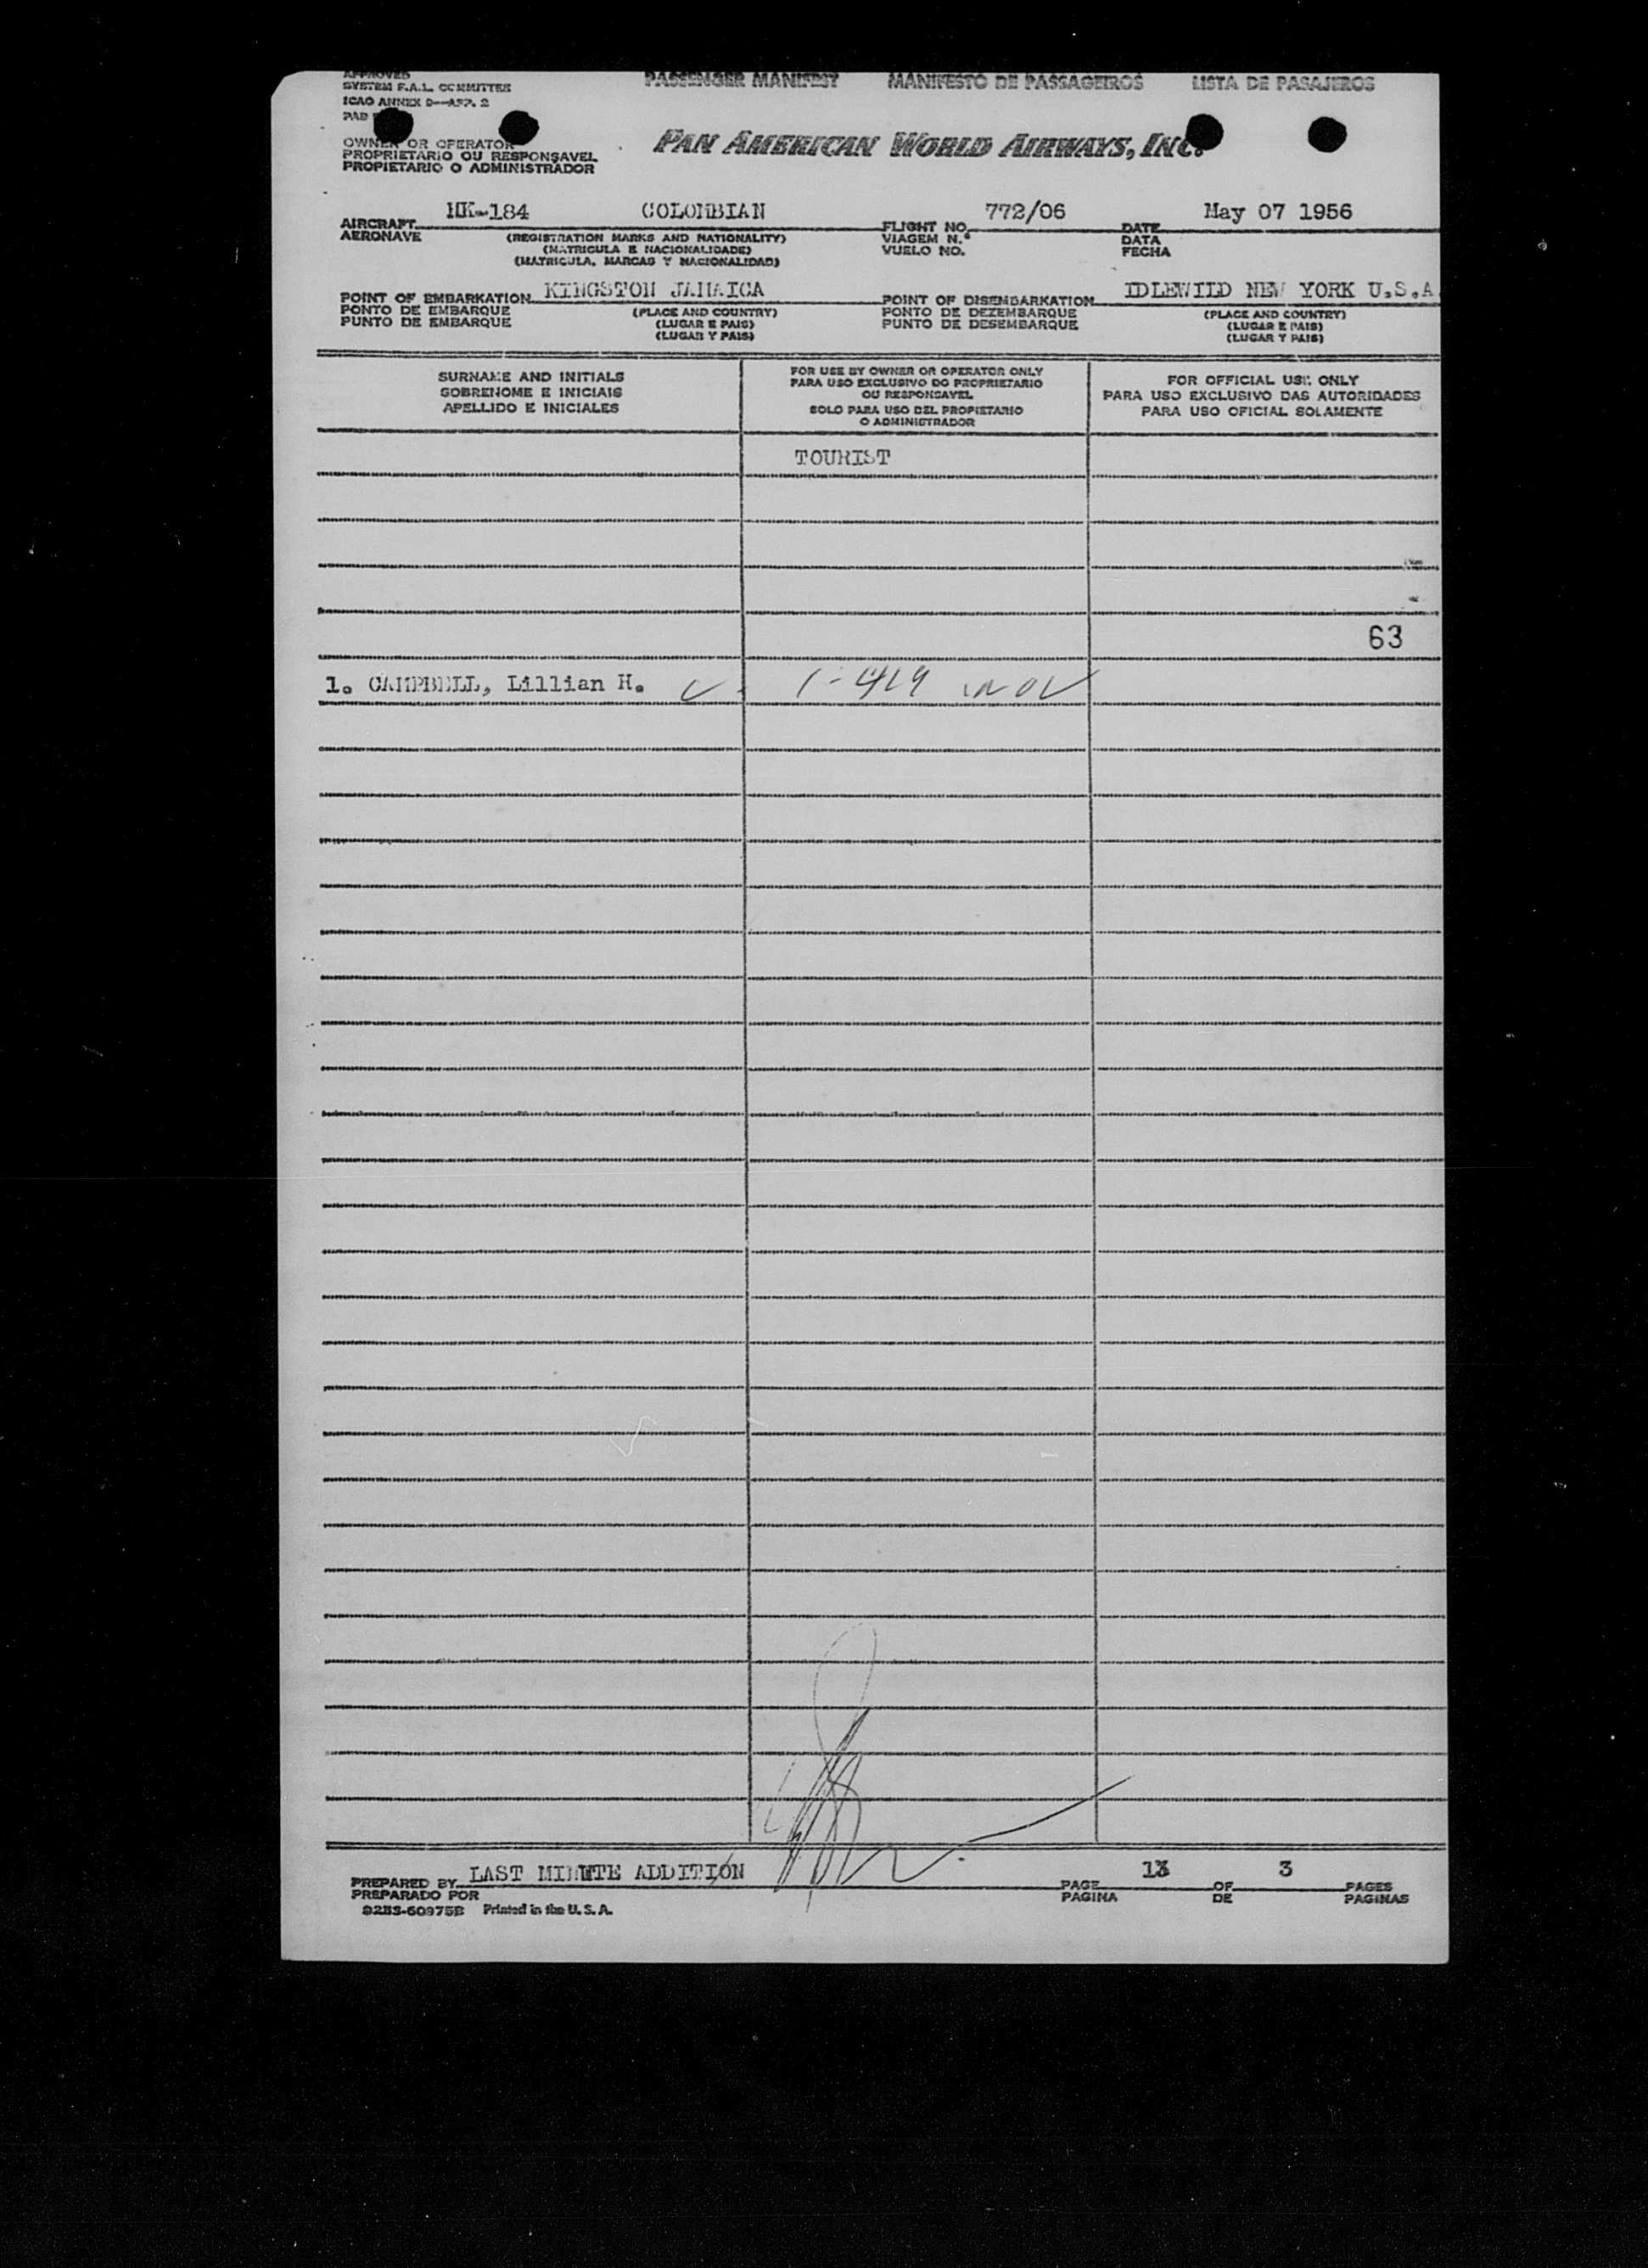 APPROVED
SYSTEM F.A.L. COMMITTEE
ICAO ANNEX 9—APP. 2
PAD
PASSENGER MANIFEST MANIFESTO DE PASSAGEIROS LISTA DE PASAJEROS
OWNER OR OPERATOR
PROPRIETARIO OU RESPONSAVEL
PROPIETARIO O ADMINISTRADOR
PAN AMERICAN WORLD AIRWAYS, INC.
HK-184 COLOMBIAN 772/06 May 07 1956
AIRCRAFT FLIGHT NO. DATE
AERONAVE (REGISTRATION MARKS AND NATIONALITY) VIAGEM N.º DATA
(MATRICULA E NACIONALIDADE) VUELO NO. FECHA
(MATRICULA, MARCAS Y NACIONALIDAD)
KINGSTON JAMAICA IDLEWILD NEW YORK U.S.A
POINT OF EMBARKATION POINT OF DISEMBARKATION
PONTO DE EMBARQUE (PLACE AND COUNTRY) PONTO DE DEZEMBARQUE (PLACE AND COUNTRY)
PUNTO DE EMBARQUE (LUGAR E PAIS) PUNTO DE DESEMBARQUE (LUGAR E PAIS)
(LUGAR Y PAIS) (LUGAR Y PAIS)
SURNAME AND INITIALS
SOBRENOME E INICIAIS
APELLIDO E INICIALES
FOR USE BY OWNER OR OPERATOR ONLY
PARA USO EXCLUSIVO DO PROPRIETARIO
OU RESPONSAVEL
SOLO PARA USO DEL PROPIETARIO
O ADMINISTRADOR
FOR OFFICIAL USE ONLY
PARA USO EXCLUSIVO DAS AUTORIDADES
PARA USO OFICIAL SOLAMENTE
TOURIST
63
1. CAMPBELL, Lillian H.
LAST MINUTE ADDITION 3
PREPARED BY PAGE OF PAGES
PREPARADO POR PAGINA DE PAGINAS
9283-60975B Printed in the U.S.A.